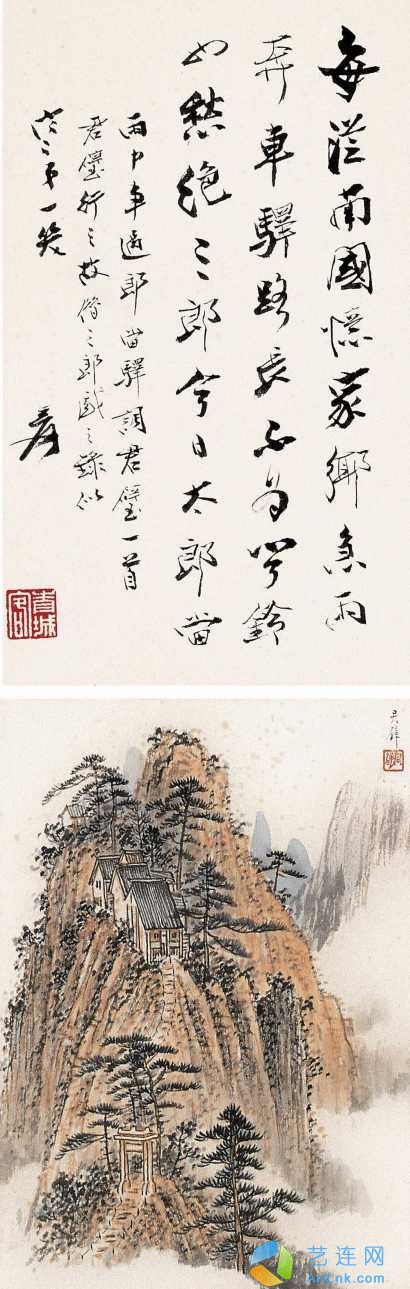 每從南國憶家鄉急雨
奔車驛路長不為聞鈴
也愁絕三郎今日太郎當
雨中車過郎當驛調君璧一首
君璧行三故借三郎戲之錄似
之弟一笑
爰
青城客
君璧
艺连网
ArtLnk.com